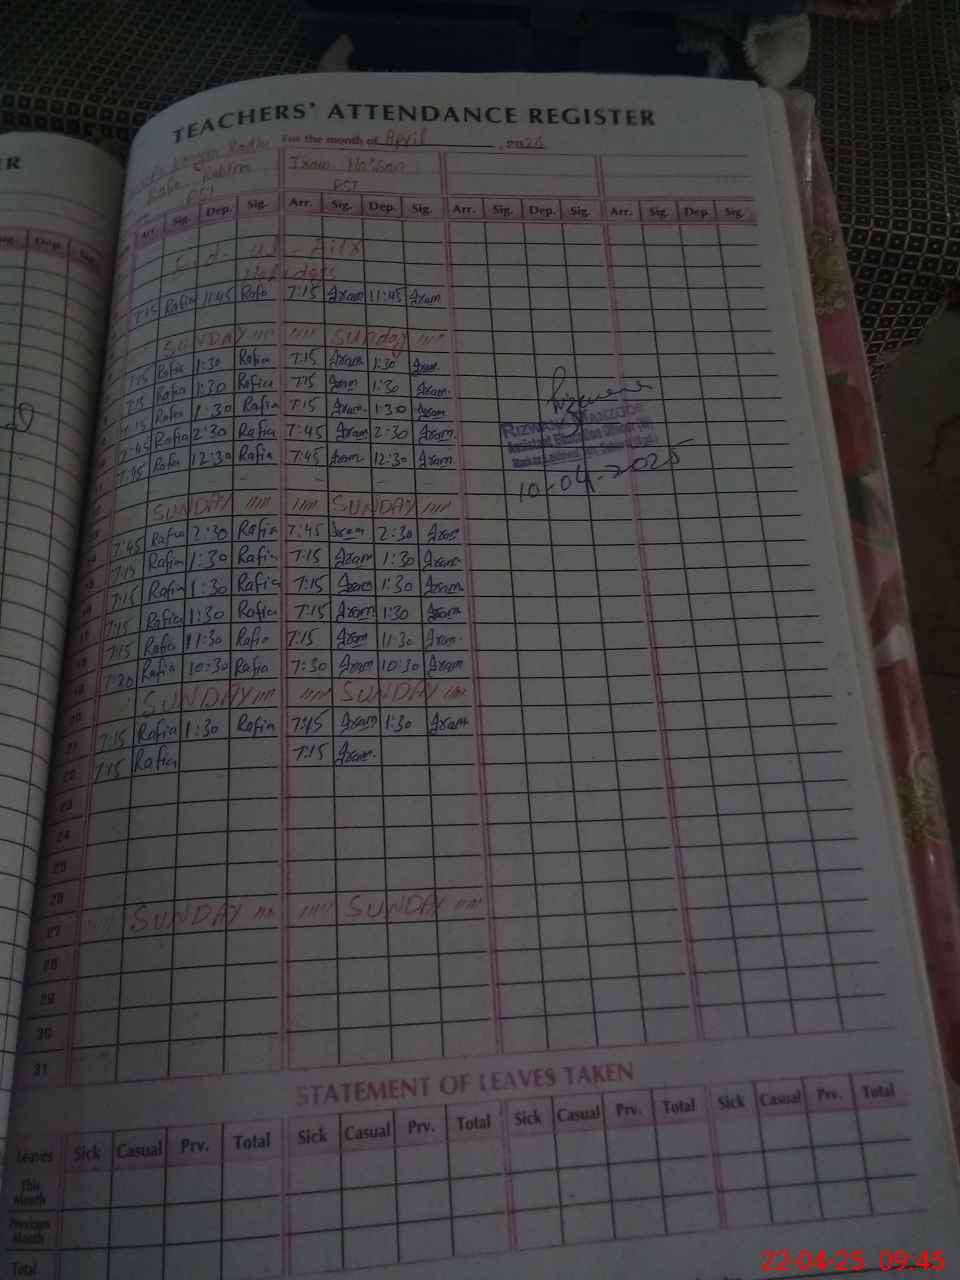 ER
TEACHERS' ATTENDANCE REGISTER
For the month of April , 2025
Rafia
Iram Hassan
PST PST
Arr. Sig. Dep. Sig. Arr. Sig. Dep. Sig. Arr. Sig. Dep. Sig. Arr. Sig. Dep. Sig.
Eid-ul-Fitr
Holidays
7:15 Rafia 11:45 Rafia 7:15 Iram 11:45 Iram
SUNDAY Sunday
7:15 Rafia 1:30 Rafia 7:15 Iram 1:30 Iram
7:15 Rafia 1:30 Rafia 7:15 Iram 1:30 Iram.
7:15 Rafia 1:30 Rafia 7:15 Iram. 1:30 Iram
7:45 Rafia 2:30 Rafia 7:45 Iram 2:30 Iram.
7:45 Rafia 12:30 Rafia 7:45 Iram. 12:30 Iram.
RIZWAN MANZOOR
Assistant Education Officer
10-04-2025
SUNDAY SUNDAY
7:45 Rafia 2:30 Rafia 7:45 Iram 2:30 Iram
7:15 Rafia 1:30 Rafia 7:15 Iram 1:30 Iram
7:15 Rafia 1:30 Rafia 7:15 Iram 1:30 Iram
7:15 Rafia 1:30 Rafia 7:15 Iram 1:30 Iram
7:15 Rafia 11:30 Rafia 7:15 Iram 11:30 Iram.
7:20 Rafia 10:30 Rafia 7:30 Iram 10:30 Iram
19 SUNDAY SUNDAY
20 7:15 Rafia 1:30 Rafia 7:15 Iram 1:30 Iram
21 7:15 Rafia 7:15 Iram.
22
23
24
25
26
27 SUNDAY SUNDAY
28
29
30
31
STATEMENT OF LEAVES TAKEN
Leaves Sick Casual Prv. Total Sick Casual Prv. Total Sick Casual Prv. Total Sick Casual Prv. Total
This Month
Previous Month
Total
22-04-25 09:45